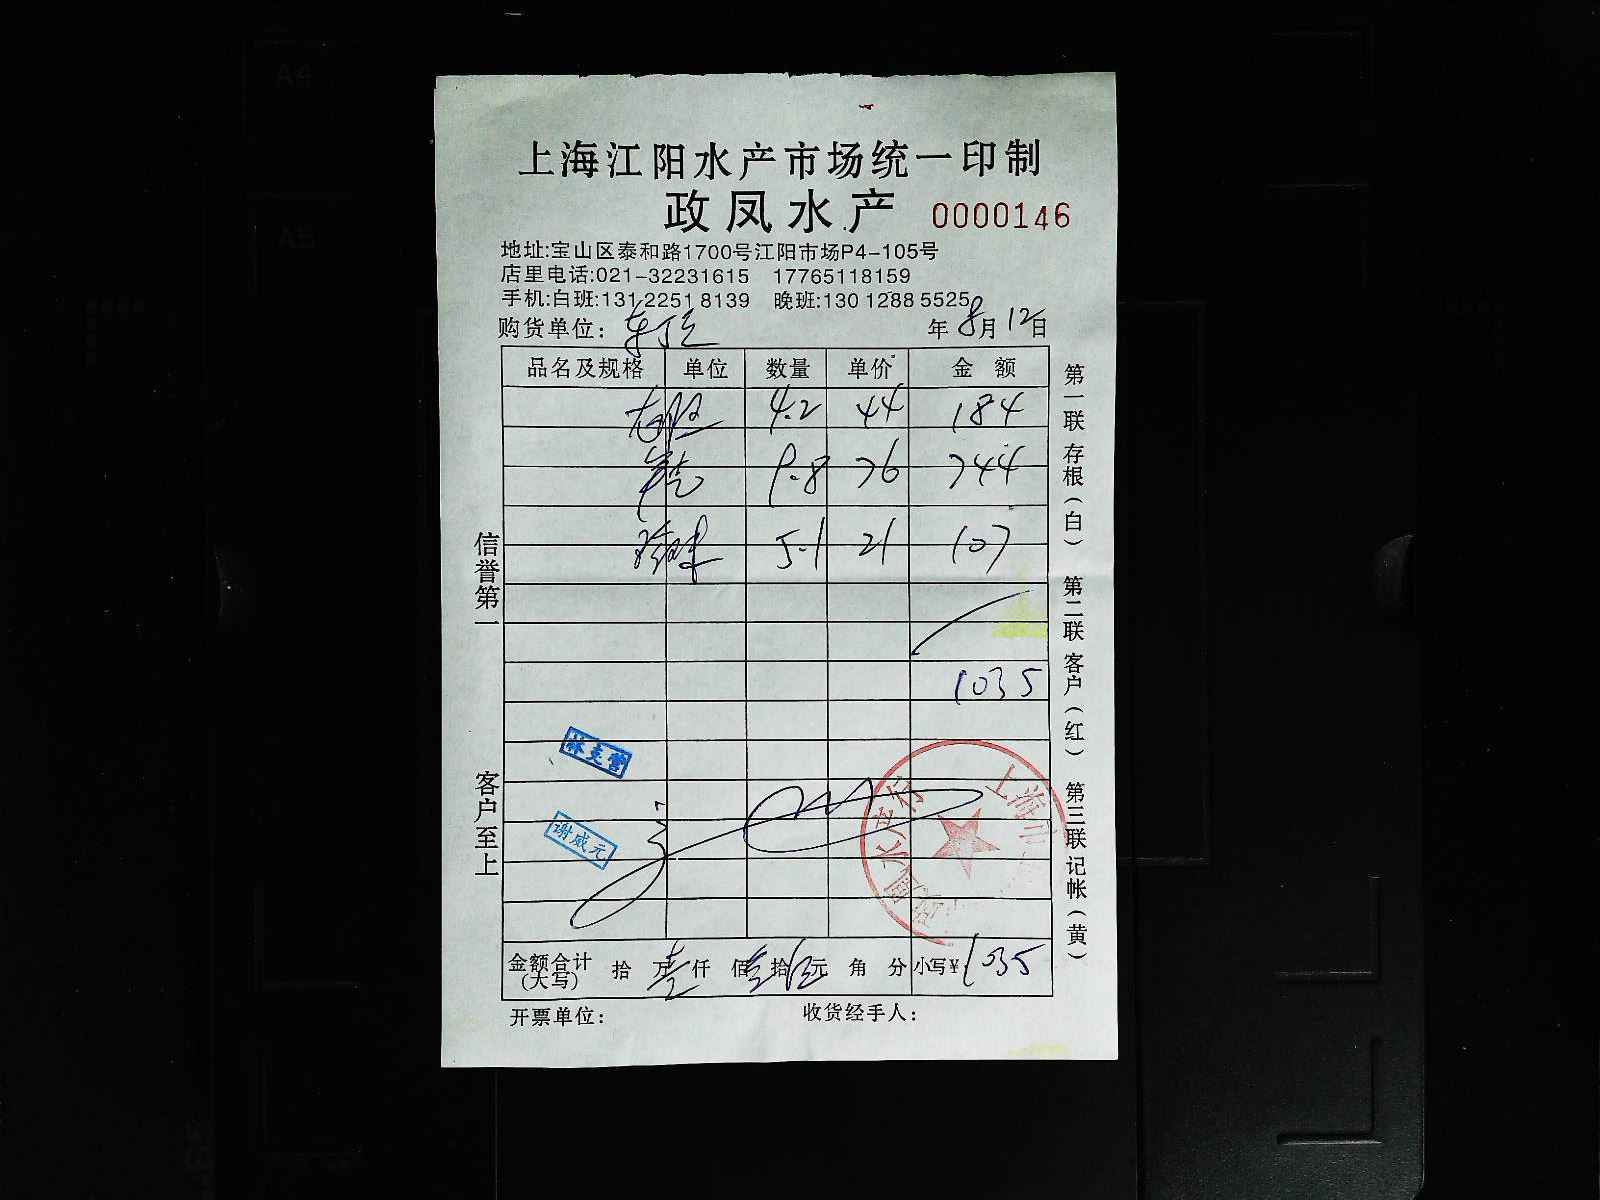 A4
A5
上海江阳水产市场统一印制
政凤水产 0000146
地址:宝山区泰和路1700号江阳市场P4-105号
店里电话:021-32231615 17765118159
手机:白班:131 2251 8139 晚班:130 1288 5525
购货单位: 年8月12日
品名及规格 单位 数量 单价 金额
4.2 44 184
9.8 76 744
5.1 21 107
1035
信誉第一
客户至上
第一联存根(白) 第二联客户(红) 第三联记帐(黄)
谢威元
上海市
水产行
金额合计(大写) 拾 万壹仟 佰叁拾伍元 角 分 小写¥1035
开票单位: 收货经手人: